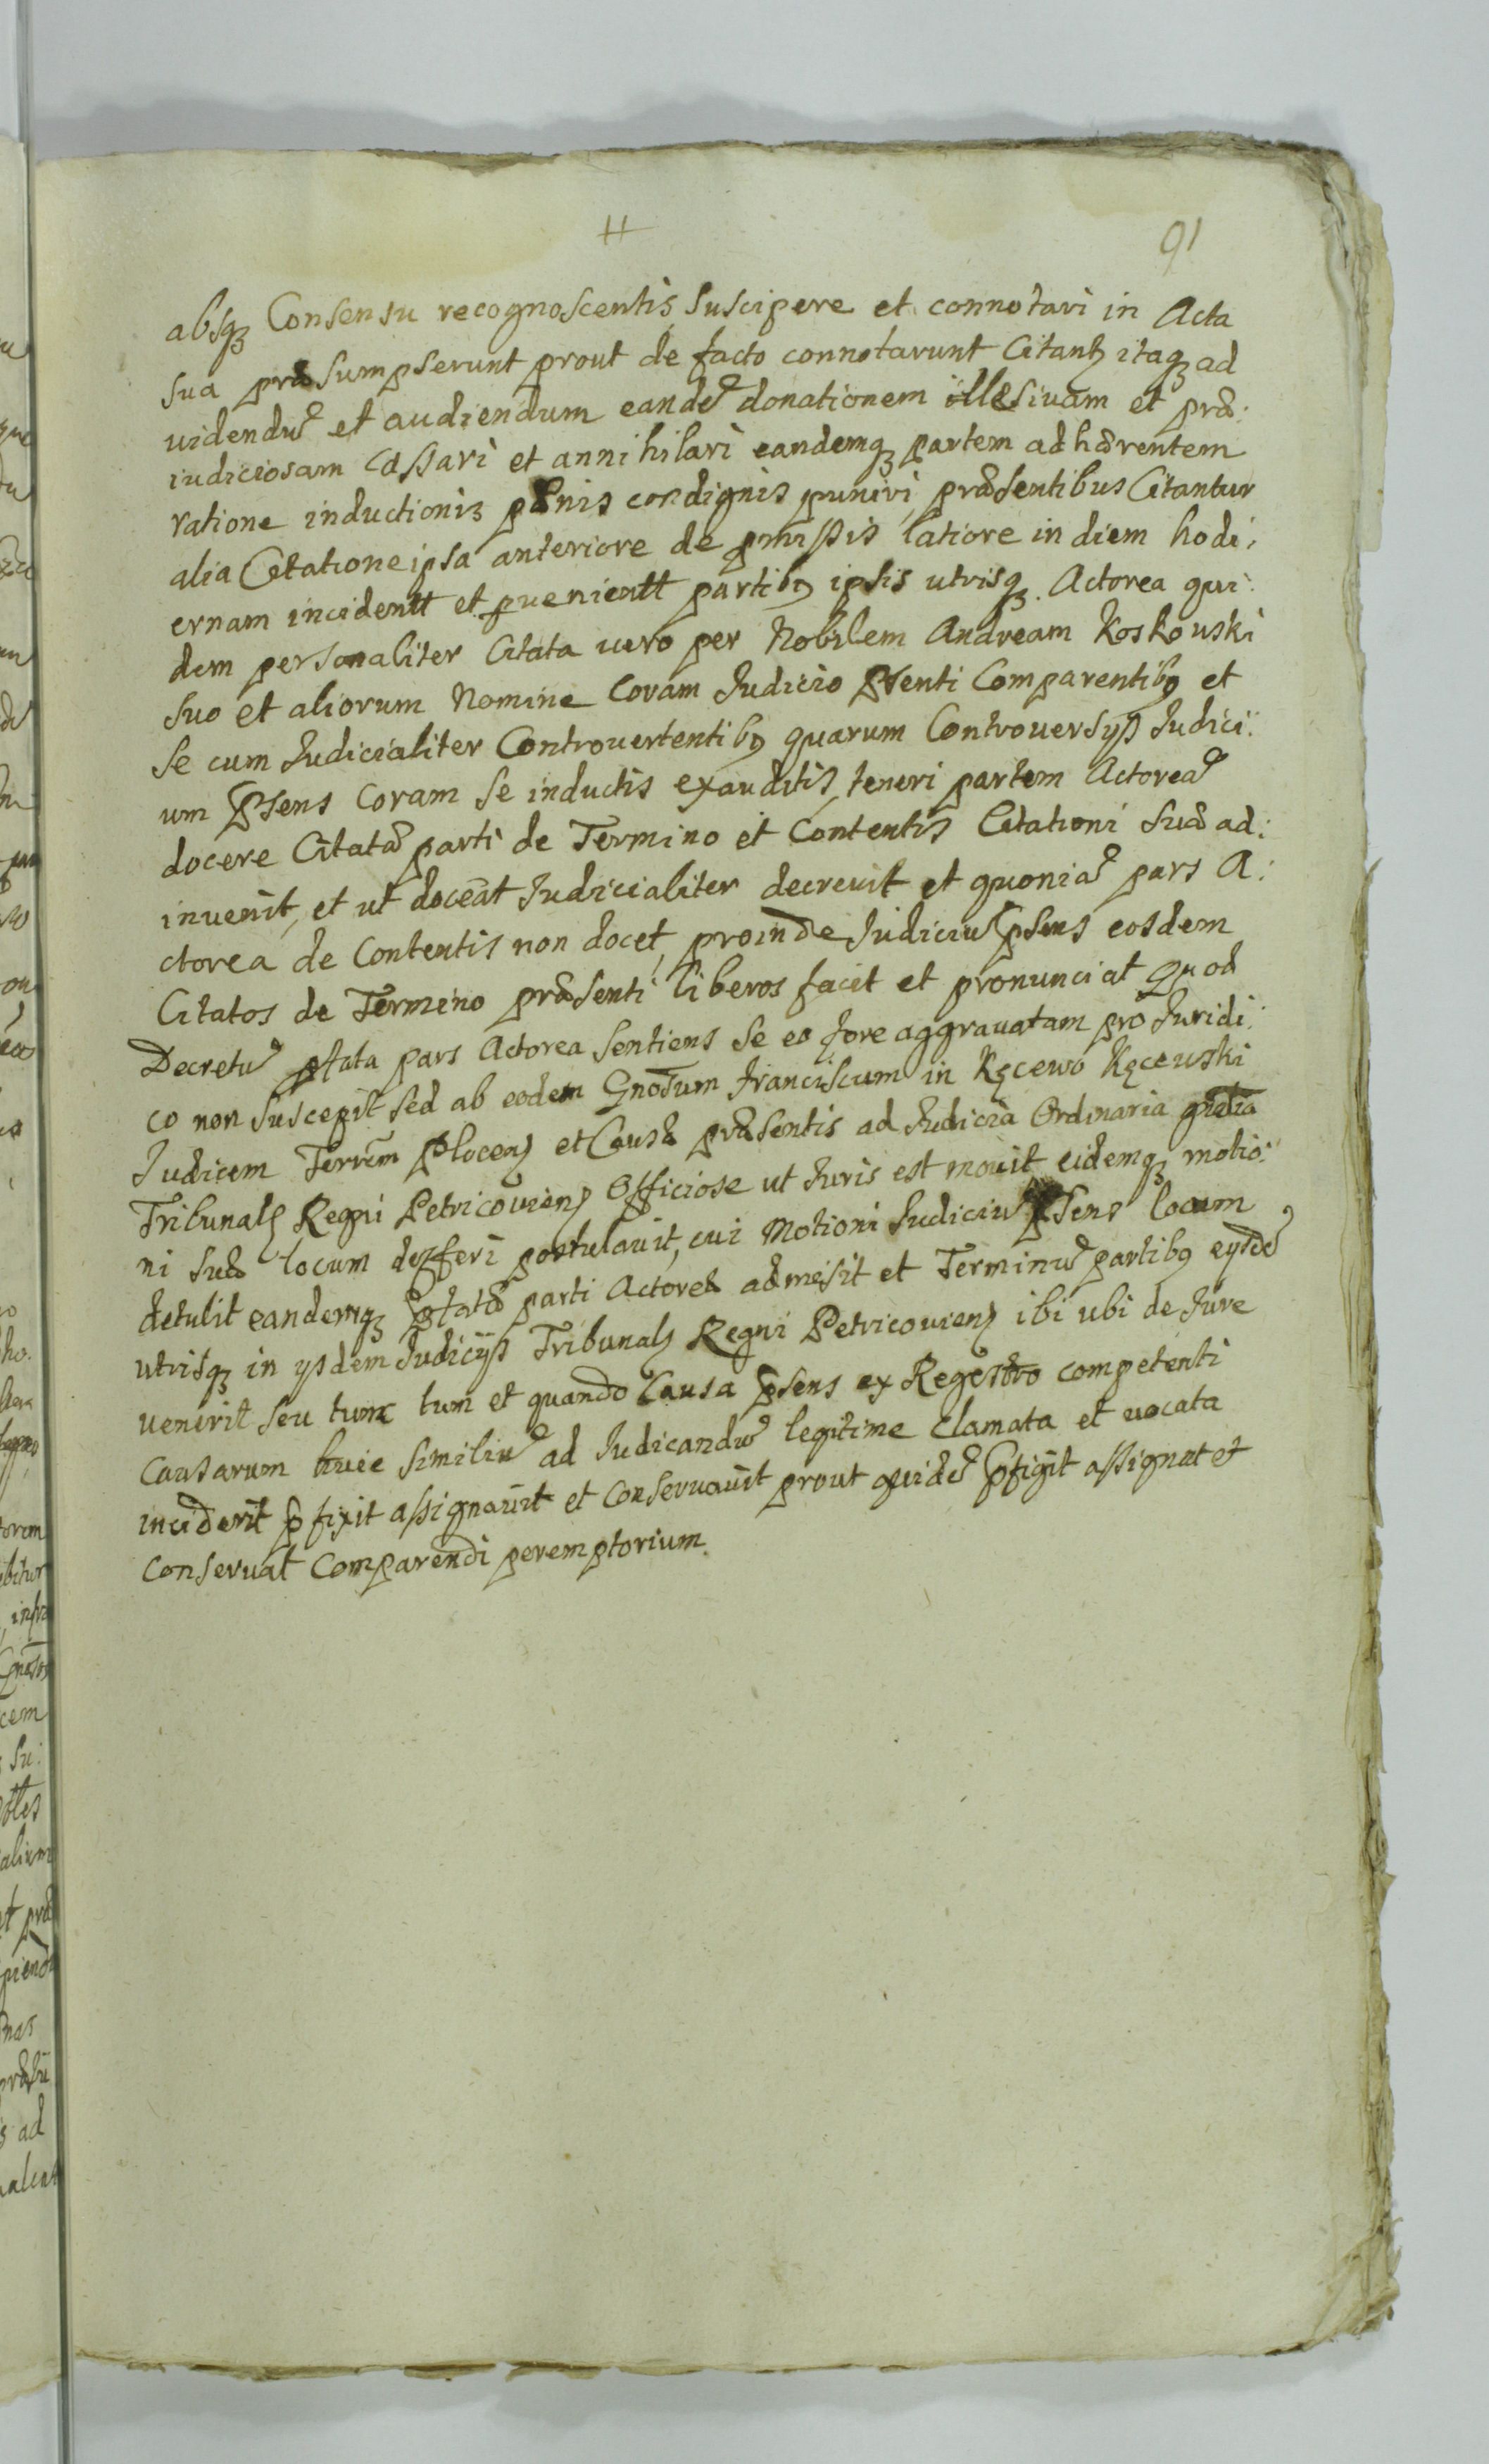 91
absq₃ Consensu recognoscentis suscipere et connotari in Acta
sua præsumpserunt prout de facto connotarunt Citantꝫ itaq₃ ad
videndu͂ et audiendum eande͂ donationem illesivam et præ:
iudiciosam cassari et annihilari eandemq₃ partem adhærentem
ratione inductionis pænis condignis puniri, præsentibus Citantur
alia Citatione ipsa anteriore de pmissis latiore in diem hodi:
ernam incidentt et pvenientt partibꝰ ipsis utrisq₃. Actorea qui:
dem personaliter Citata vero per Nobilem Andream Koskowski
suo et aliorum Nomine Coram Judicio psenti Comparentibꝰ et
se cum Judicialiter Controvertentibꝰ quarum Controversys Judici:
um psens coram se inductis exauditis, teneri partem Actorea͂
docere Citatæ parti de Termino et Contentis Citationi suæ ad:
invenit, et ut doceat Judicialiter decrevit et quonia͂ pars A:
ctorea de Contentis non docet, proinde Judiciu͂ psens eosdem
Citatos de Termino præsenti liberos facit et pronunciat Quod
Decretu͂ pfata pars Actorea sentiens se eo fore aggravatam pro Juridi:
co non suscepit sed ab eodem Gnosum Franciscum in Kęcewo Kęcewski
Judicem Terrēm Plocenꝫ et Causæ præsentis ad Judicia Ordinaria gnalia
Tribunalꝫ Regni Petricovienꝫ Officiose ut Juris est movit eidemq₃ motio:
ni suæ locum defferi postulavit, cui Motioni Judiciu͂ psens locum
detulit eandemq₃ pfatæ parti Actoreæ admisit et Terminu͂ partibꝰ eysde͂
utrisq₃ in ysdem Judicÿs Tribunalꝫ Regni Petricovienꝫ ibi ubi de Jure
venerit seu tunc tum et quando Causa psens ex Regestro competenti
Causarum huic similiu͂ ad Judicandu͂ legitime clamata et vocata
inciderit pfixit assignavit et conservavit prout quide͂ pfigit assignat et
conservat comparendi peremptorium.